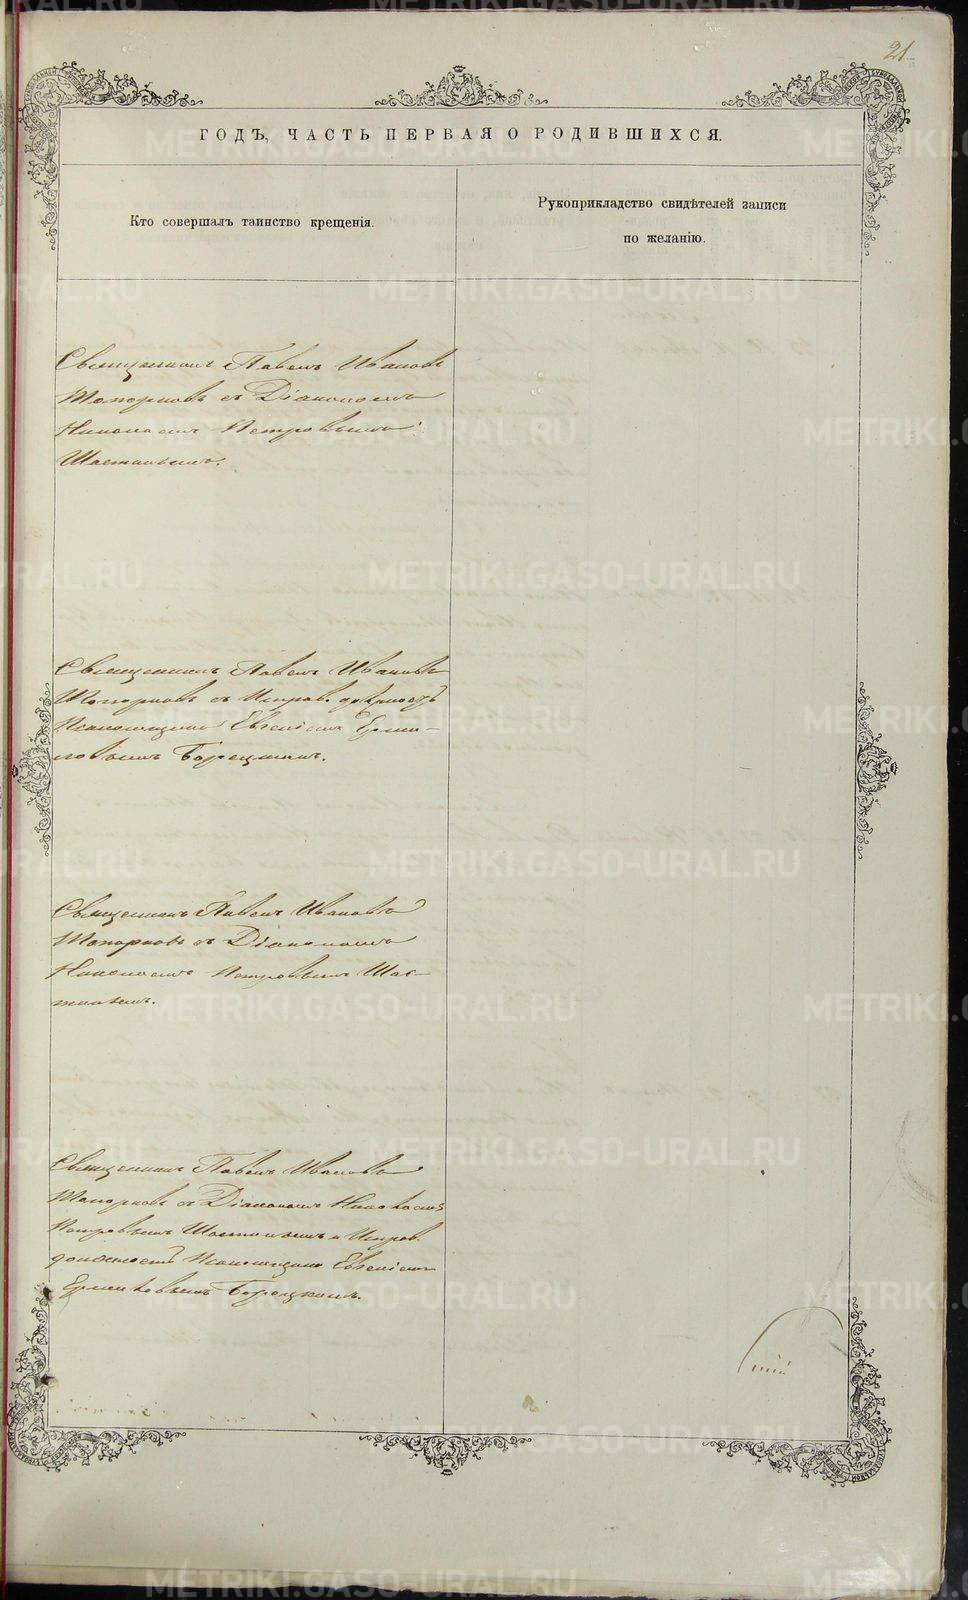 21
ГОДЪ, ЧАСТЬ ПЕРВАЯ О РОДИВШИХСЯ.
Кто совершалъ таинство крещенія.
Рукоприкладство свидѣтелей записи
по желанію.
Священникъ Павелъ Ивановъ
Топорковъ съ Діакономъ
Николаемъ Петровымъ
Священникъ Павелъ Ивановъ
Топорковъ съ Исправ. должность
Псаломщика Евгеніемъ Ерми-
ловымъ Борецкимъ.
Священникъ Павелъ Ивановъ
Топорковъ съ Діакономъ
Николаемъ Петровымъ
Священникъ Павелъ Ивановъ
Топорковъ съ Діакономъ Николаемъ
Петровымъ и Исправ.
должность Псаломщика Евгеніемъ
Ермиловымъ Борецкимъ.
METRIKI.GASO-URAL.RU